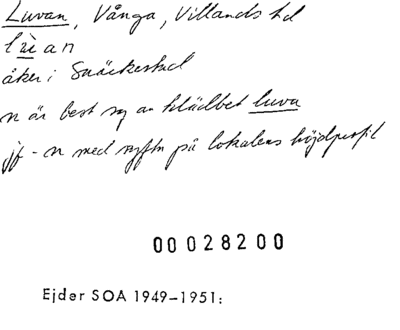 Luvan, Vånga, Villands hd
lùan
åker i Snäckestad
n är best sg av klädbet luva
jf - n med syftn på lokalens höjdprofil
00028200
Ejder SOA 1949–1951: